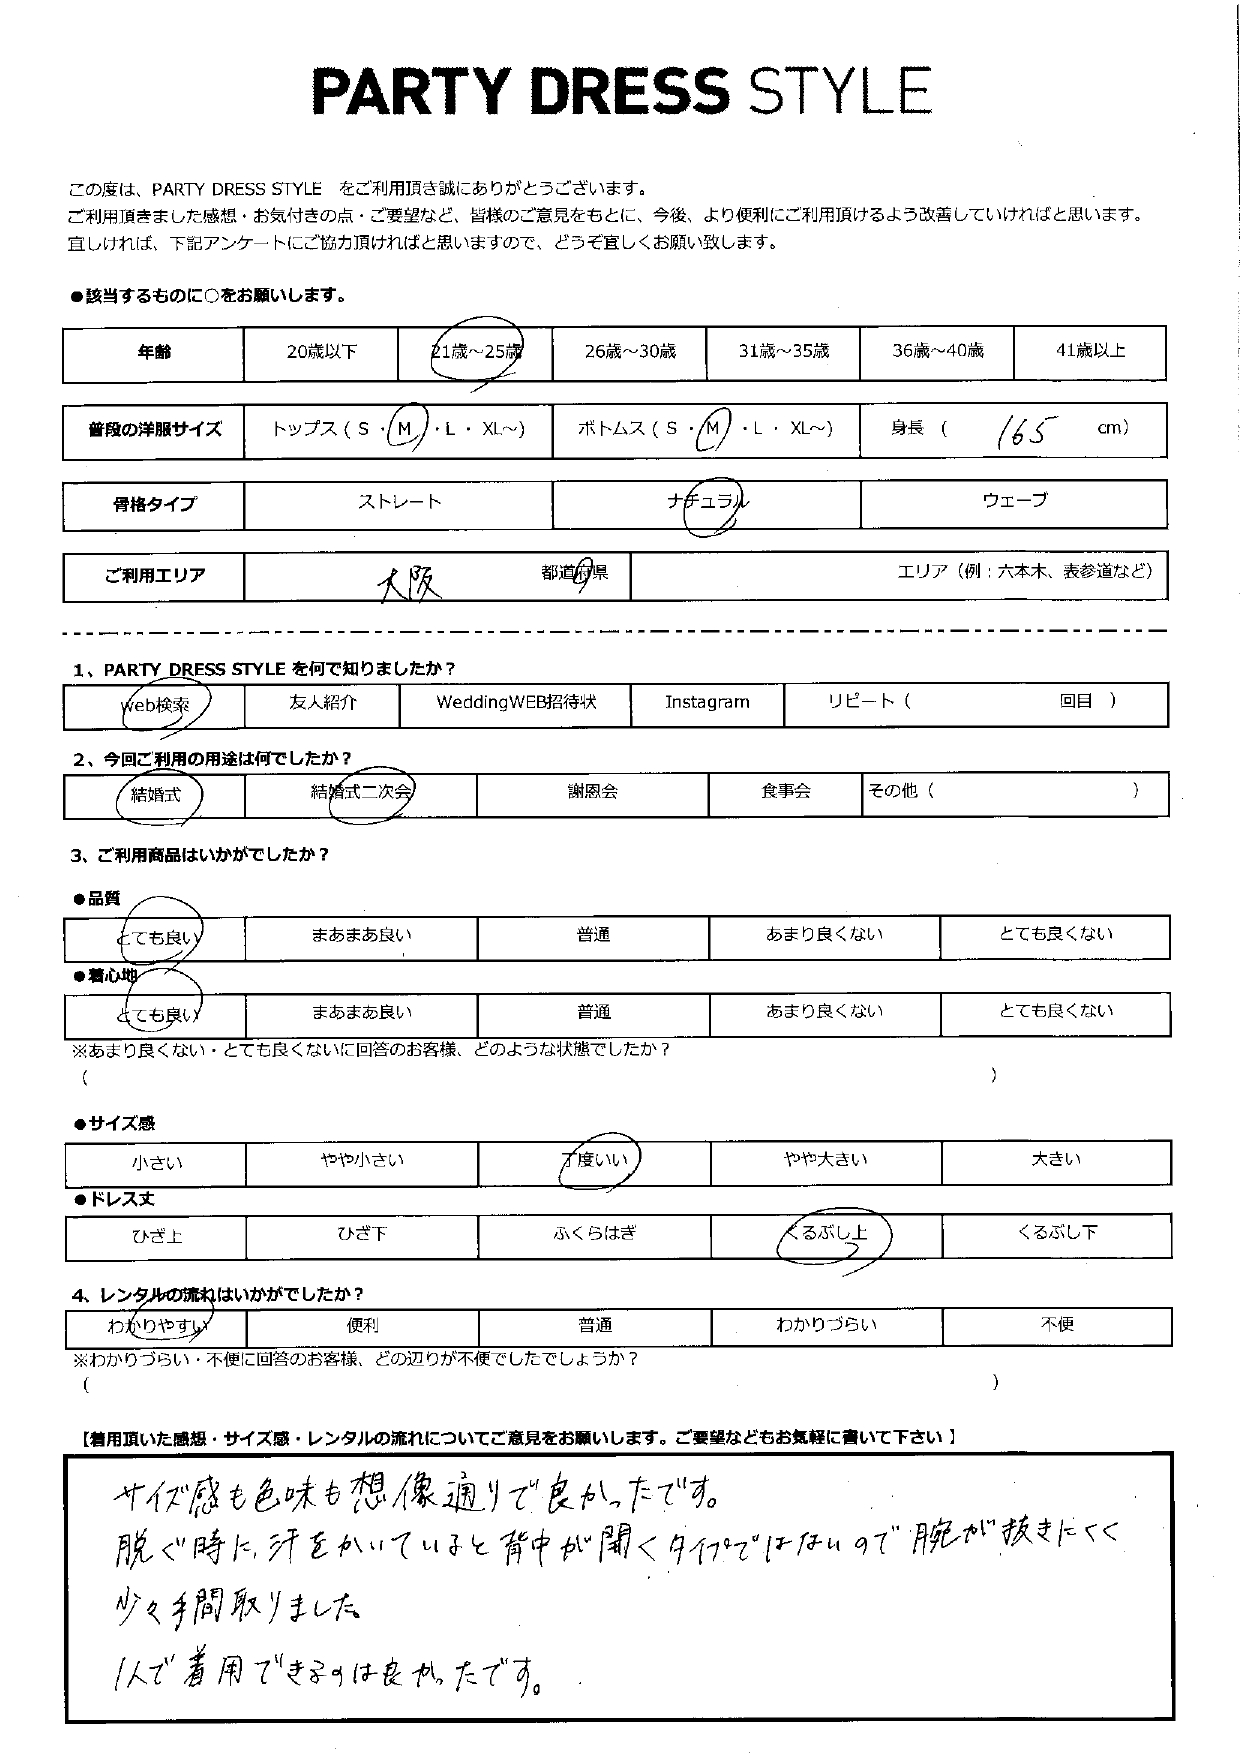 PARTY DRESS STYLE
この度は、PARTY DRESS STYLE　をご利用頂き誠にありがとうございます。
ご利用頂きました感想・お気付きの点・ご要望など、皆様のご意見をもとに、今後、より便利にご利用頂けるよう改善していければと思います。
宜しければ、下記アンケートにご協力頂ければと思いますので、どうぞ宜しくお願い致します。
●該当するものに○をお願いします。
年齢 20歳以下 21歳～25歳 26歳～30歳 31歳～35歳 36歳～40歳 41歳以上
普段の洋服サイズ トップス ( S ・ M ・ L ・ XL～) ボトムス ( S ・ M ・ L ・ XL～) 身長 ( 165 cm)
骨格タイプ ストレート ナチュラル ウェーブ
ご利用エリア 大阪 都道府県 エリア（例：六本木、表参道など）
1、PARTY DRESS STYLE を何で知りましたか？
web検索 友人紹介 WeddingWEB招待状 Instagram リピート（ 回目 ）
2、今回ご利用の用途は何でしたか？
結婚式 結婚式二次会 謝恩会 食事会 その他（ ）
3、ご利用商品はいかがでしたか？
●品質
とても良い まあまあ良い 普通 あまり良くない とても良くない
●着心地
とても良い まあまあ良い 普通 あまり良くない とても良くない
※あまり良くない・とても良くないに回答のお客様、どのような状態でしたか？
（ ）
●サイズ感
小さい やや小さい 丁度いい やや大きい 大きい
●ドレス丈
ひざ上 ひざ下 ふくらはぎ くるぶし上 くるぶし下
4、レンタルの流れはいかがでしたか？
わかりやすい 便利 普通 わかりづらい 不便
※わかりづらい・不便に回答のお客様、どの辺りが不便でしたでしょうか？
（ ）
【着用頂いた感想・サイズ感・レンタルの流れについてご意見をお願いします。ご要望などもお気軽に書いて下さい】
サイズ感も色味も想像通りで良かったです。
脱ぐ時に、汗をかいていると背中が開くタイプではないので腕が抜きにくく
少々手間取りました。
1人で着用できるのは良かったです。